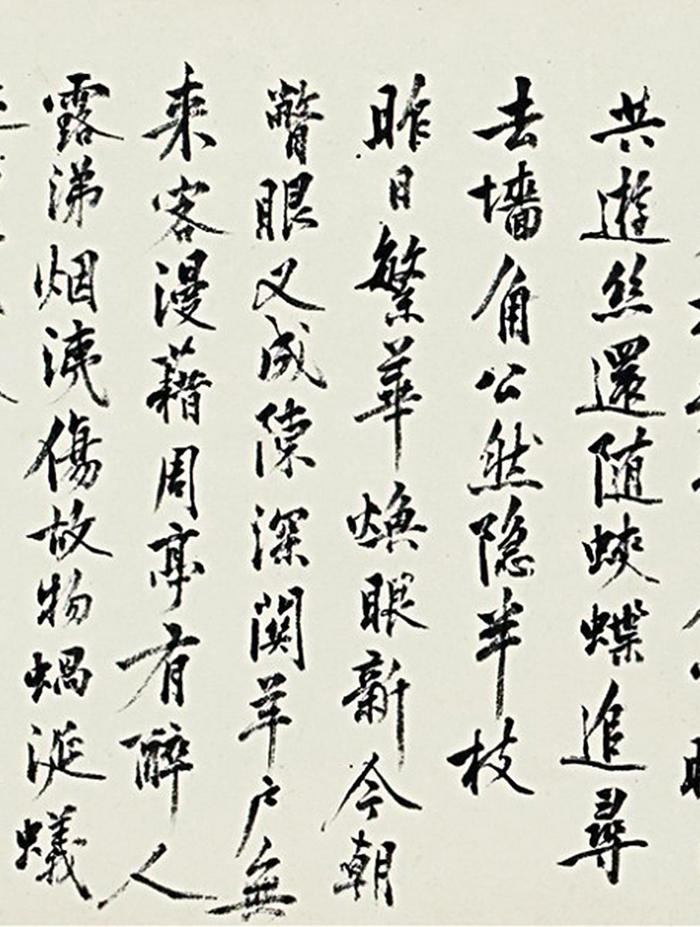 共遊絲還随蛺蝶追尋
去墻角公然隐半枝
昨日繁華煥眼新今朝
瞥眼又成陳深關羊户無
来客漫藉周亭有醉人
露涕烟洟傷故物蝸涎蟻